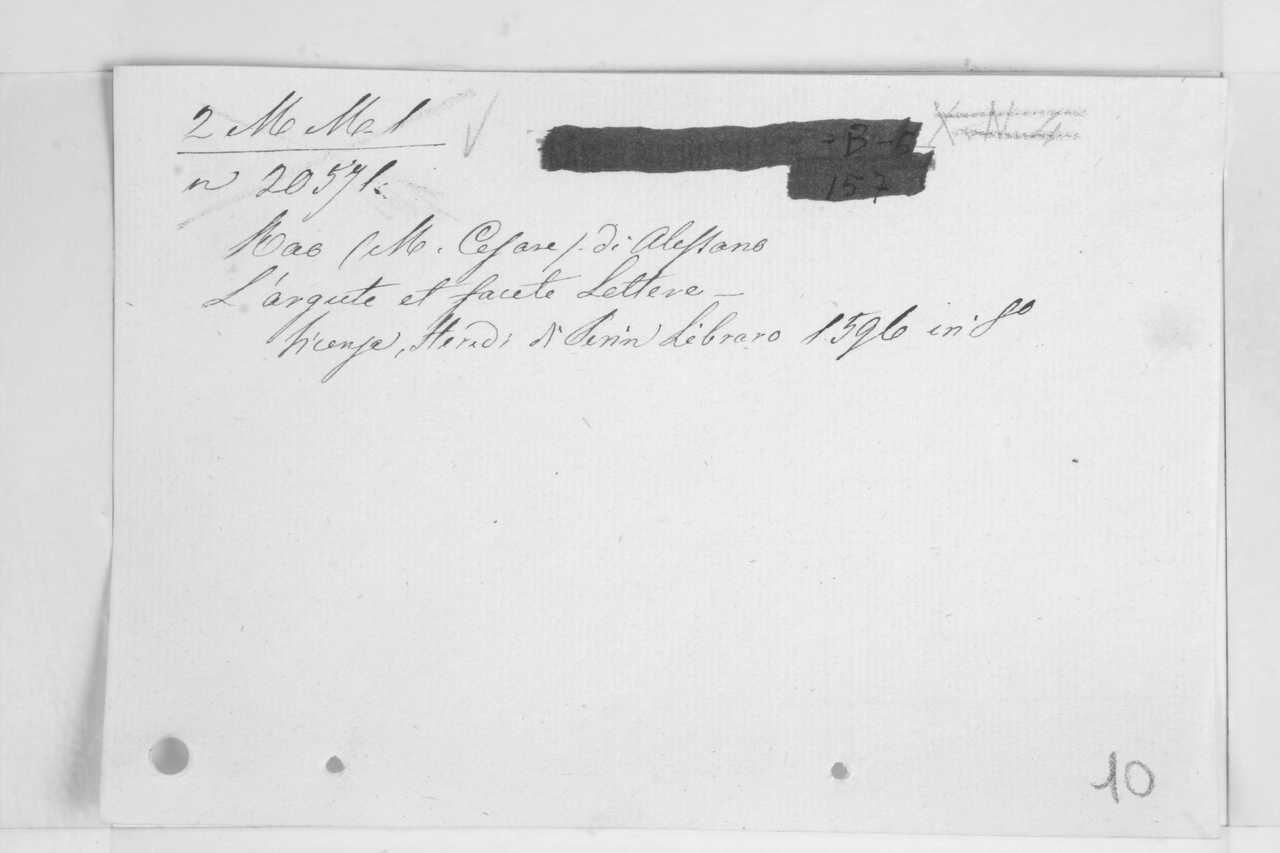 2 M Mel
n 20571.
Rao (M. Cesare). di Alessano
L'argute et facete Lettere —
Vicenza, Heredi di Perin Libraro 1596 in 8º
- B -
157
10